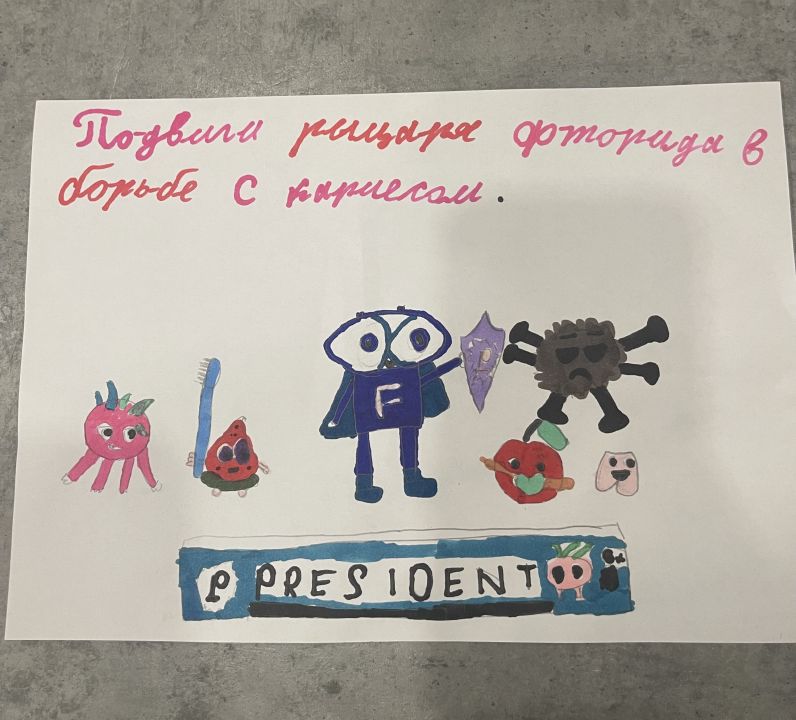 Подвиги рыцаря фторида в
борьбе с кариесом.
F
P PRESIDENT